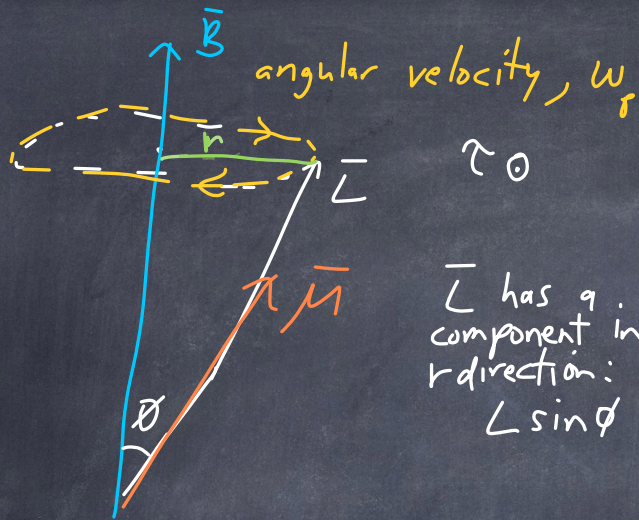 B̅
angular velocity, ω_p
r
L̅
τ ⊙
μ̅
L̅ has a
component in
r direction:
L sin φ
Ø